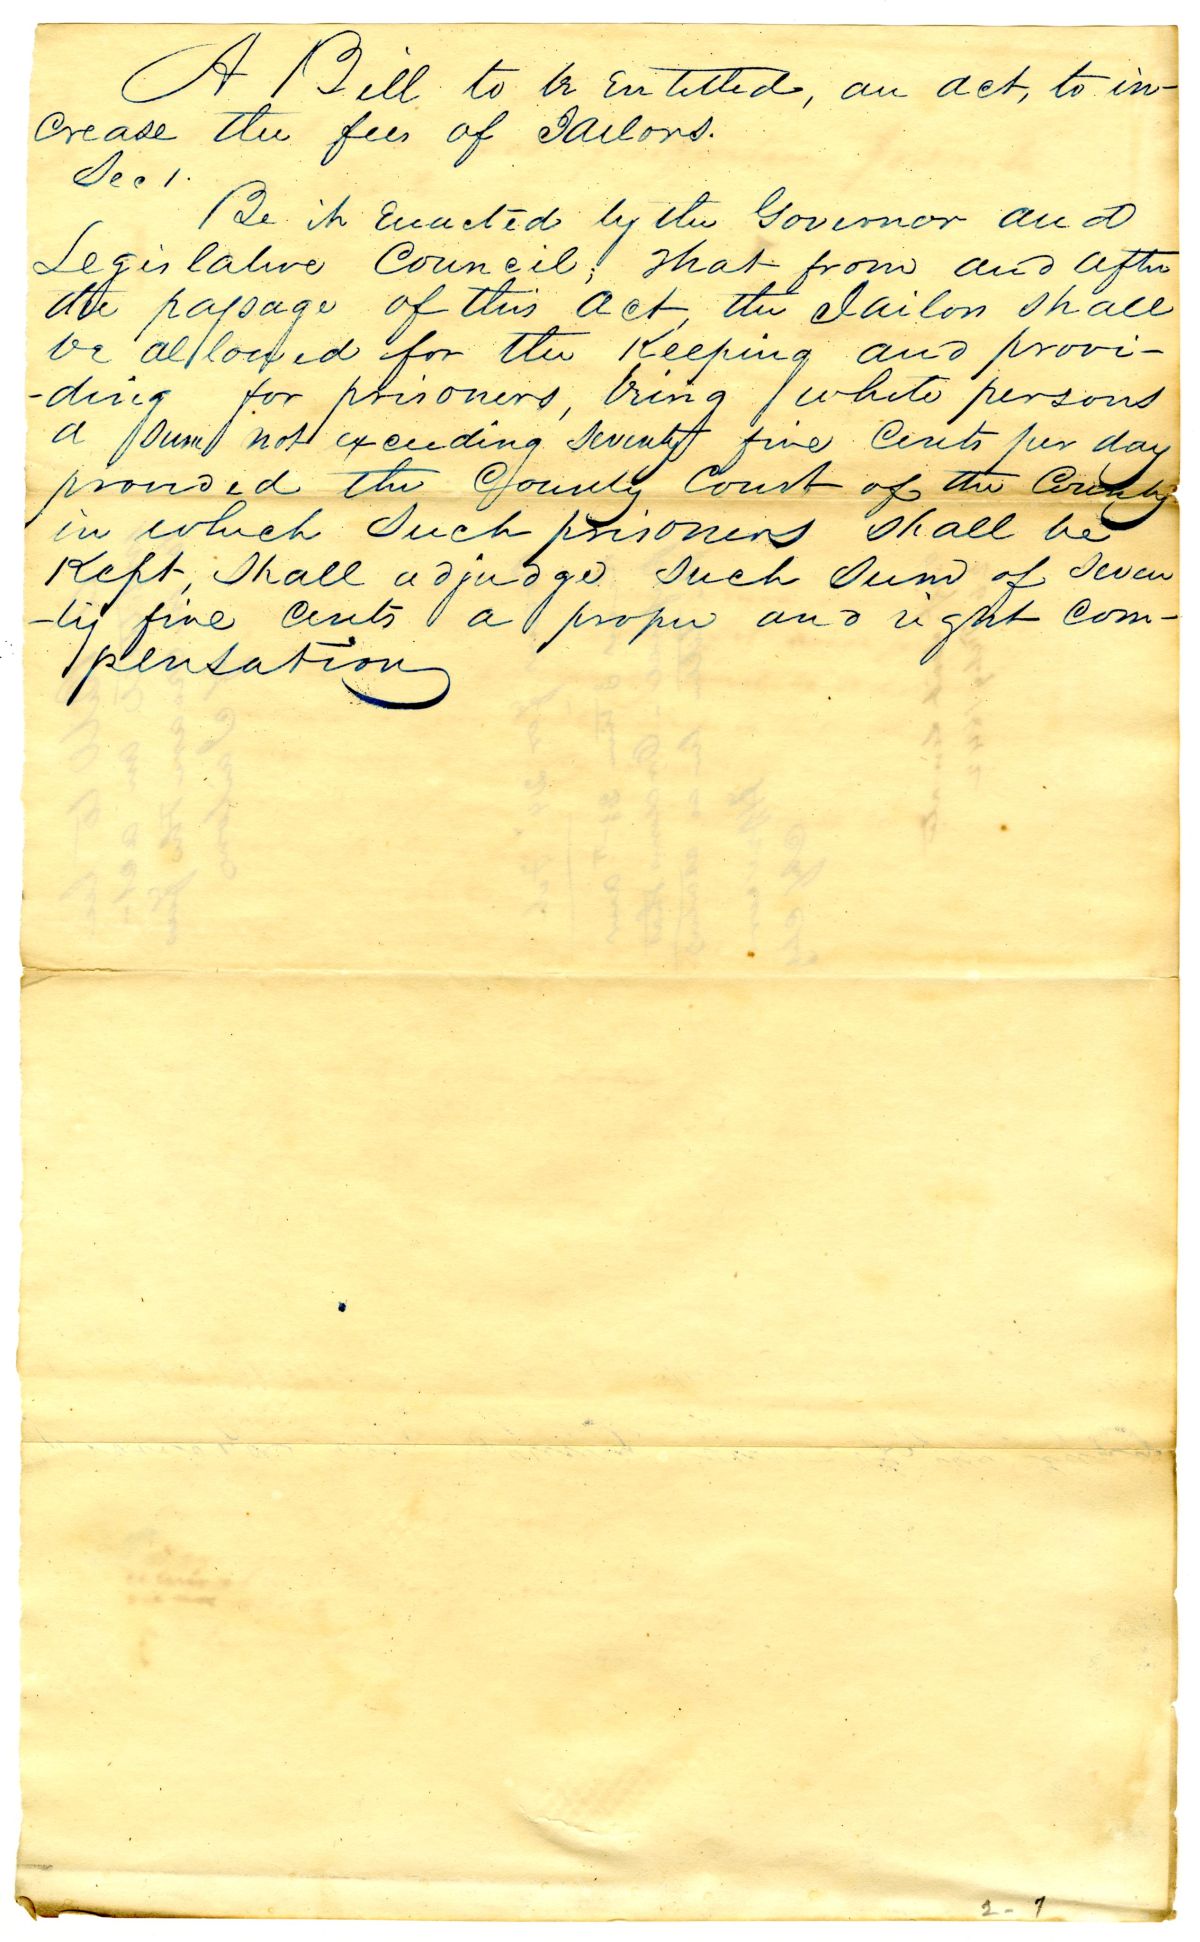 A Bill to be Entitled, an act, to in-
crease the fees of Jailors.
Sec 1.
Be it Enacted by the Governor and
Legislative Council; That from and after
the passage of this Act, the Jailors shall
be allowed for the Keeping and provi-
-ding for prisoners, being white persons
a sum not exceeding seventy five Cents per day
provided the County Court of the County
in which Such prisoners shall be
Kept, Shall adjudge such Sum of Seven
-ty five Cents a proper and right com-
pensation
2-7